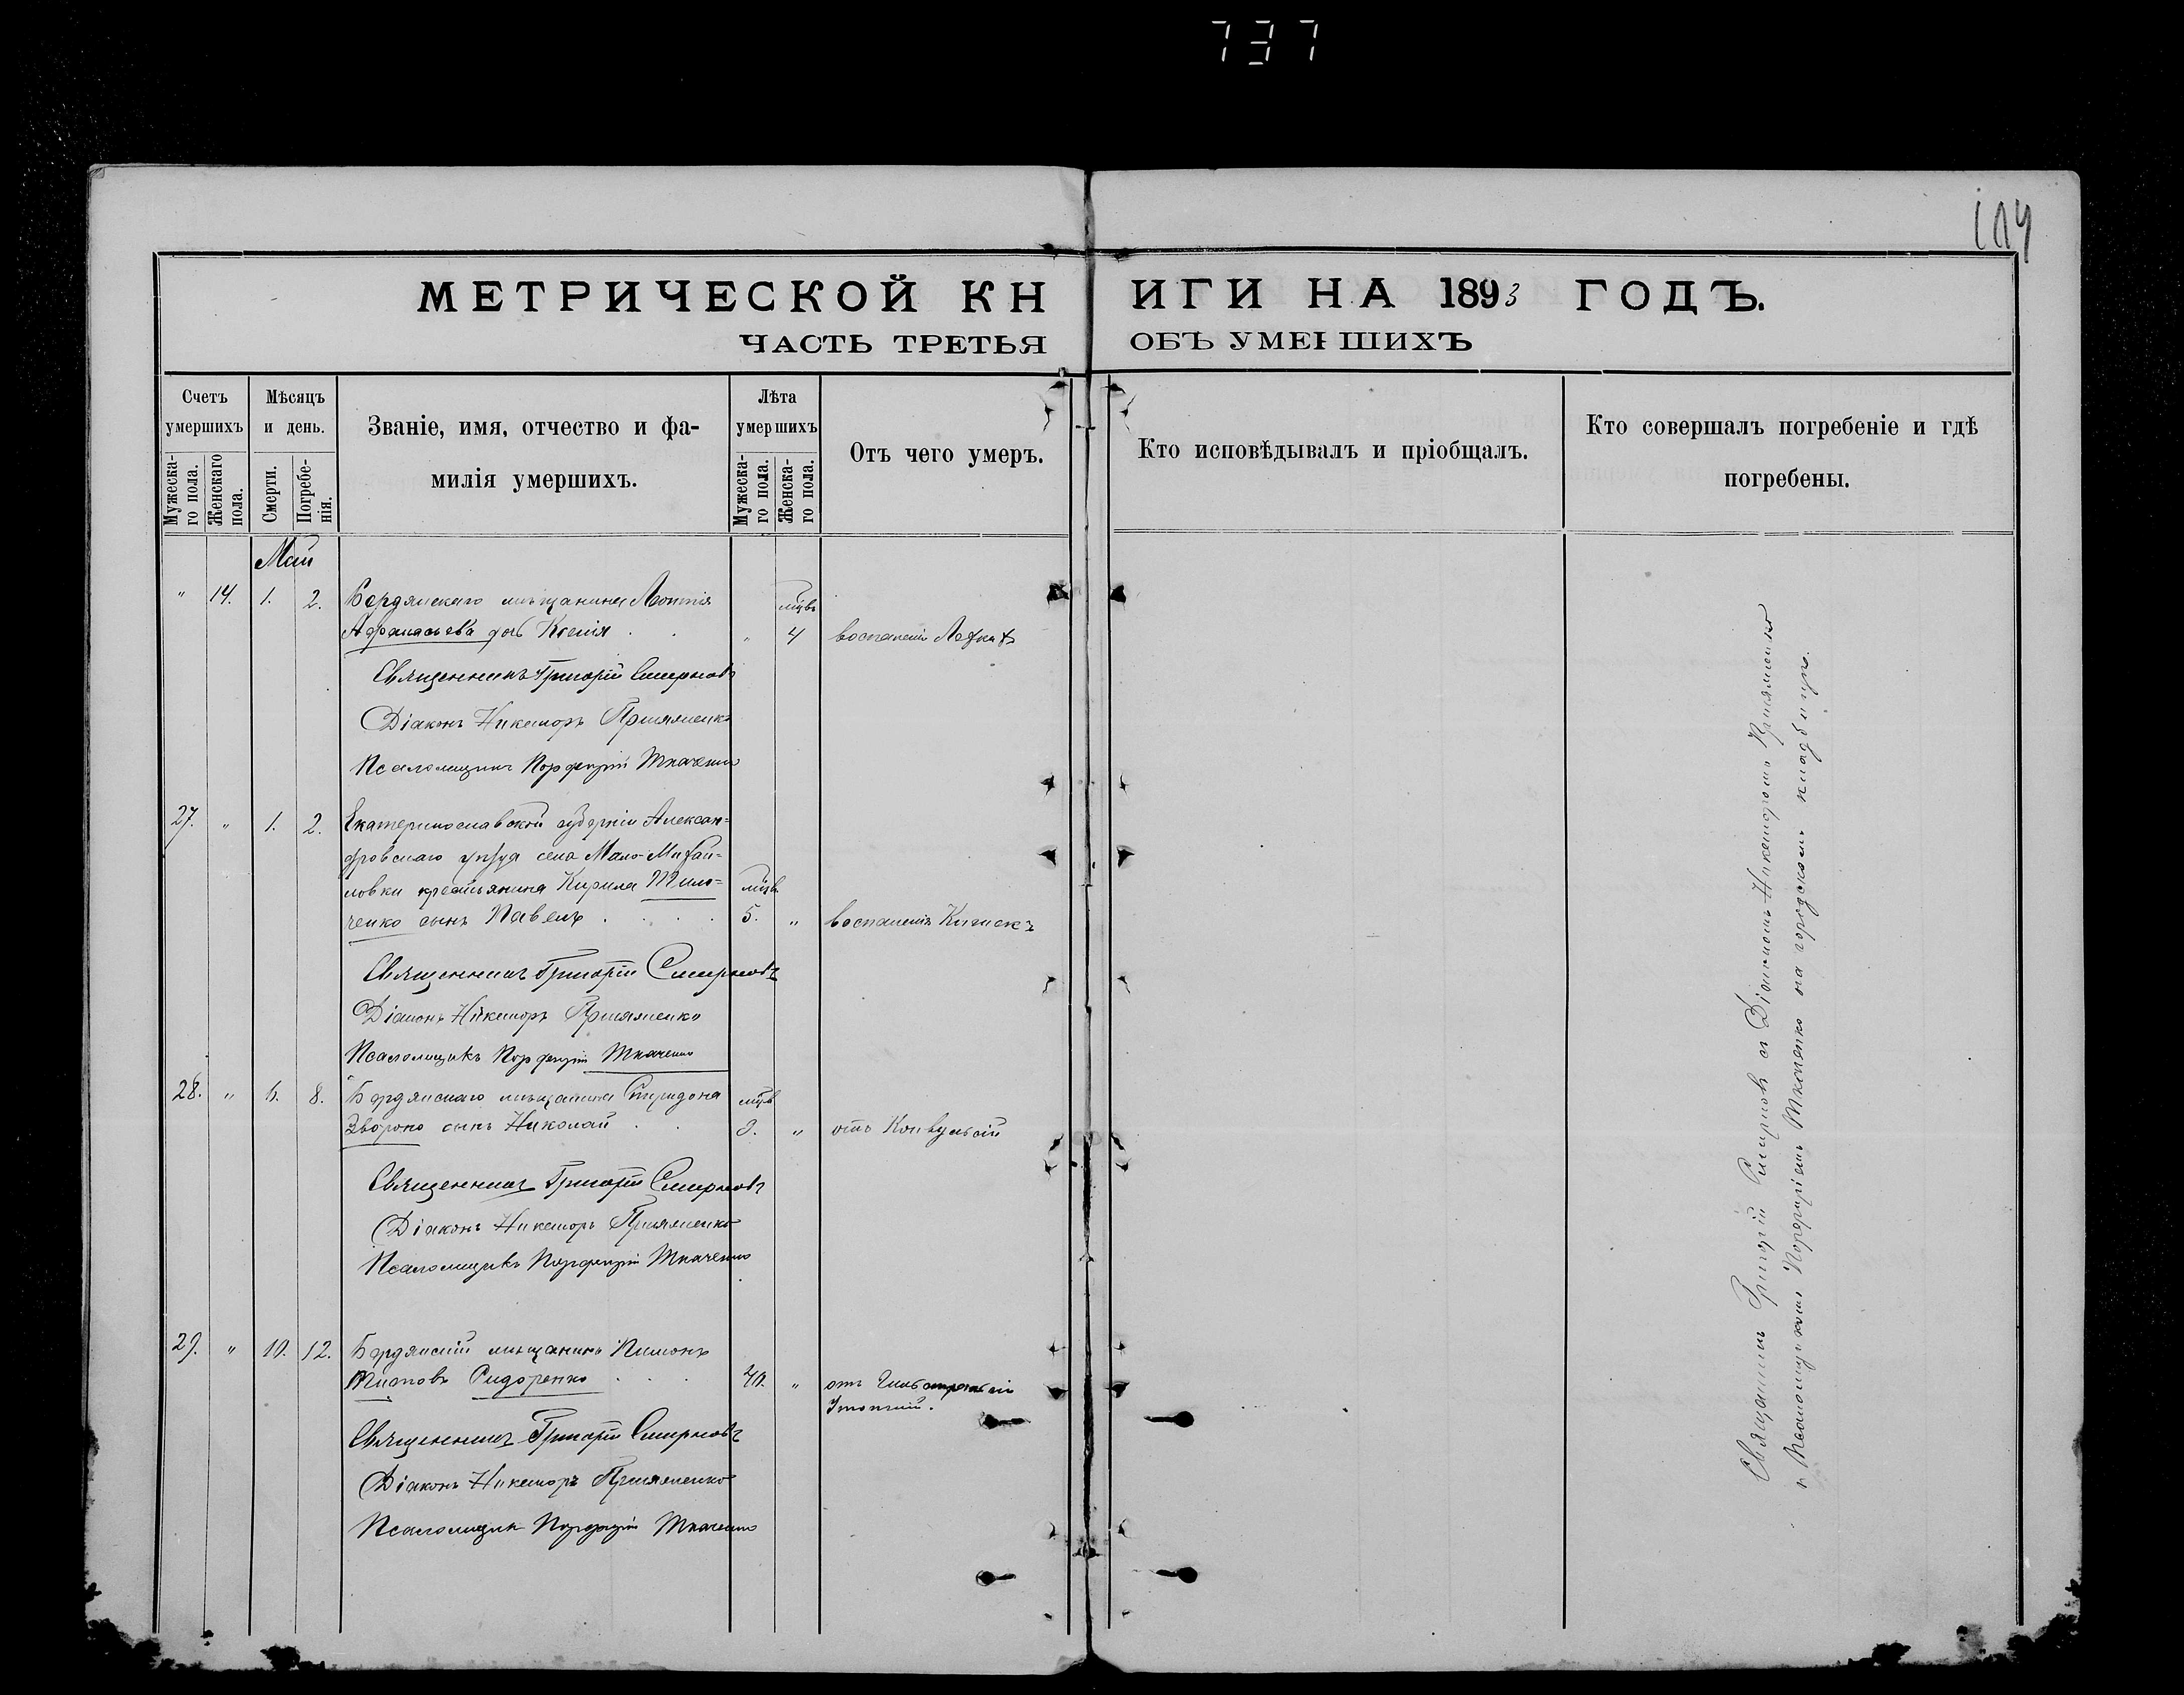 737
114
МЕТРИЧЕСКОЙ КНИГИ НА 1893 ГОДЪ.
ЧАСТЬ ТРЕТЬЯ ОБЪ УМЕРШИХЪ
Счетъ умершихъ
Мужеска-го пола.
Женскаго пола.
Мѣсяцъ и день.
Смерти.
Погребе-нія.
Званіе, имя, отчество и фа-
милія умершихъ.
Лѣта умершихъ
Мужеска-го пола.
Женска-го пола.
Отъ чего умеръ.
Кто исповѣдывалъ и пріобщалъ.
Кто совершалъ погребеніе и гдѣ
погребены.
Май
" 14. 1. 2. Бердянскаго мѣщанина Леонтія
Афанасьева дочь Ксенія . . " 4 воспаленія
Священникъ Григорій Смирновъ
Діаконъ Никаноръ
Псаломщикъ Порфирій Ткаченко
27. " 1. 2. Екатеринославской губерніи Алексан=
дровскаго уѣзда села Мало-Михай=
ловки крестьянина Кирила
ченко сынъ Павелъ . . . . 5. " воспаленія Кишекъ
Священникъ Григорій Смирновъ
Діаконъ Никаноръ
Псаломщикъ Порфирій Ткаченко
28. " 6. 8. Бердянскаго мѣщанина Спиридона
сынъ Николай . . " отъ Конвульсій
Священникъ Григорій Смирновъ
Діаконъ Никаноръ
Псаломщикъ Порфирій Ткаченко
29. " 10. 12. Бердянскій мѣщанинъ Пименъ
Сидоренко . . . 40. " отъ
Священникъ Григорій Смирновъ
Діаконъ Никаноръ
Псаломщикъ Порфирій Ткаченко
Священникъ Григорій Смирновъ съ Діакономъ Никаноромъ
и Псаломщикомъ Порфиріемъ Ткаченко на городскомъ кладбищѣ.